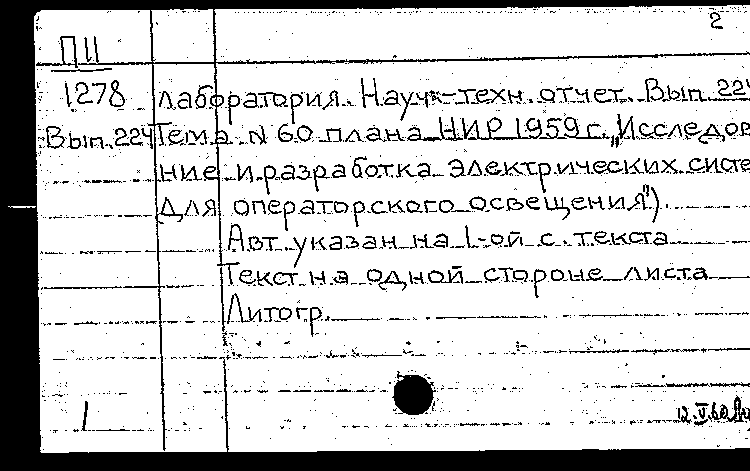 2
П II
1278 лаборатория. Научн-техн. отчет. Вып. 224
Вып. 224 Тема N 60 плана НИР 1959 г. „Исследов
ние и разработка электрических систе
для операторского освещения").
Авт. указан на 1-ой с. текста
Текст на одной стороне листа
Литогр.
1
12.V.60